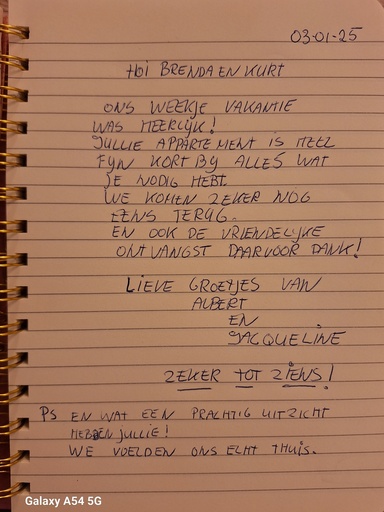 03-01-25
Hoi BRENDA EN KURT
ONS WEEKJE VAKANTIE
WAS HEERLIJK!
JULLIE APPARTEMENT IS HEEL
FYN KORT BY ALLES WAT
JE NODIG HEBT.
WE KOMEN ZEKER NOG
EENS TERUG.
EN OOK DE VRIENDELYKE
ONTVANGST DAARVOOR DANK!
LIEVE GROETJES VAN
ALBERT
EN
JACQUELINE
ZEKER TOT ZIENS!
Ps EN WAT EEN PRACHTIG UITZICHT
HEBBEN JULLIE!
WE VOELDEN ONS ECHT THUIS.
Galaxy A54 5G